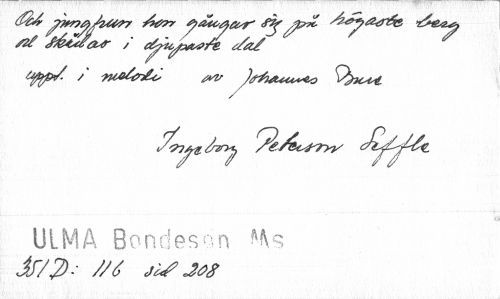 Och jungfrun hon gångar sig på högaste berg
od skådar i djupaste dal
uppt. i melodi av Johannes Bure
Ingeborg Peterson Seffle
ULMA Bondeson Ms
351 D: 116 sid 208